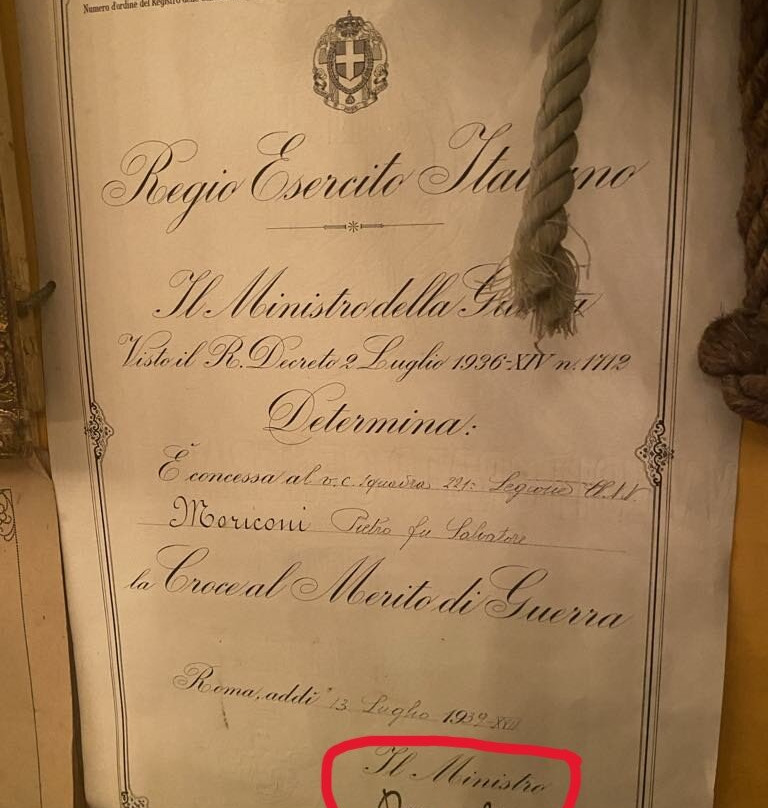 Numero d'ordine del Registro
Regio Esercito Italiano
Il Ministro della Guerra
Visto il R. Decreto 2 Luglio 1936-XIV n. 1712
Determina:
È concessa al v. c. squadra 221ª Legione CC.NN.
Moriconi Pietro fu Salvatore
la Croce al Merito di Guerra
Roma, addì 13 Luglio 1939-XVII
Il Ministro